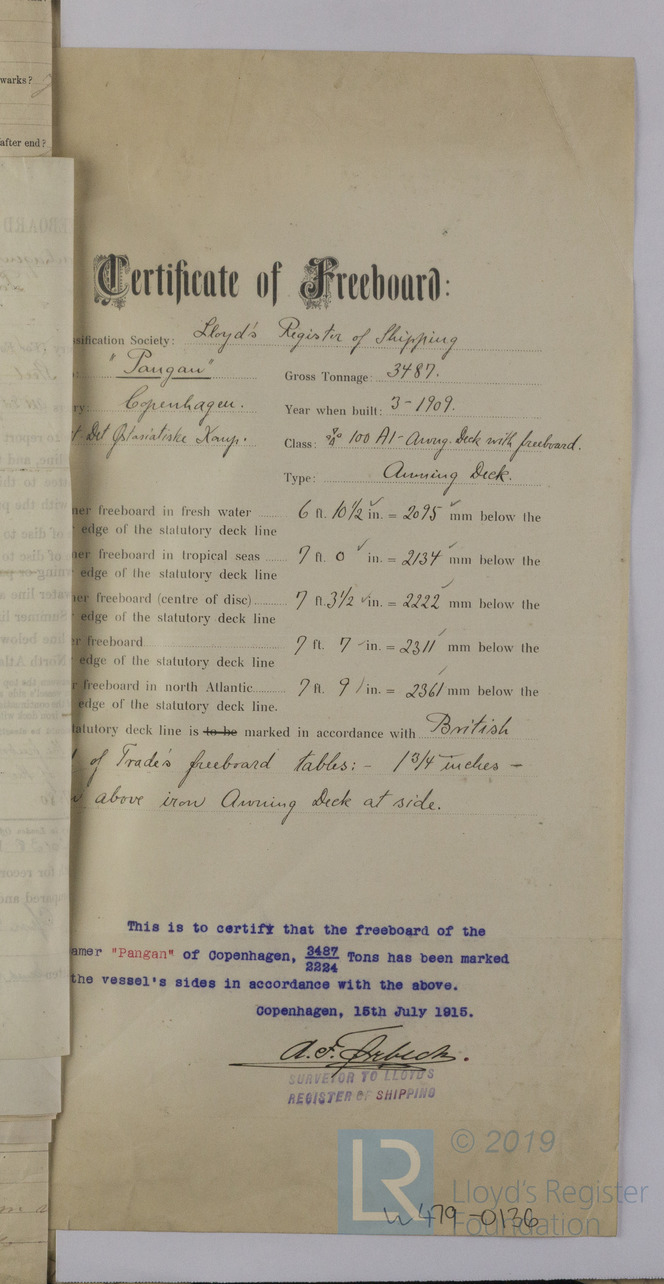 warks?
after end?
Certificate of Freeboard:
sification Society: Lloyd's Register of Shipping
"Pangan" Gross Tonnage: 3487.
ry: Copenhagen. Year when built: 3-1909.
Det Østasiatiske Komp. Class: 100 A1- Awng. Deck with freeboard.
Type: Awning Deck.
er freeboard in fresh water 6 ft. 10 1/2 in. = 2095 mm below the
edge of the statutory deck line
er freeboard in tropical seas 7 ft. 0 in. = 2134 mm below the
edge of the statutory deck line
er freeboard (centre of disc) 7 ft. 3 1/2 in. = 2222 mm below the
edge of the statutory deck line
r freeboard 7 ft. 7 in. = 2311 mm below the
edge of the statutory deck line
r freeboard in north Atlantic 7 ft. 9 in. = 2361 mm below the
edge of the statutory deck line.
tatutory deck line is to be marked in accordance with British
of Trade's freeboard tables: - 1 3/4 inches -
above iron Awning Deck at side.
This is to certify that the freeboard of the
amer "Pangan" of Copenhagen, 3487/2224 Tons has been marked
the vessel's sides in accordance with the above.
Copenhagen, 15th July 1915.
SURVEYOR TO LLOYD'S
REGISTER OF SHIPPING
LR
© 2019
Lloyd's Register
Foundation
W479-0136